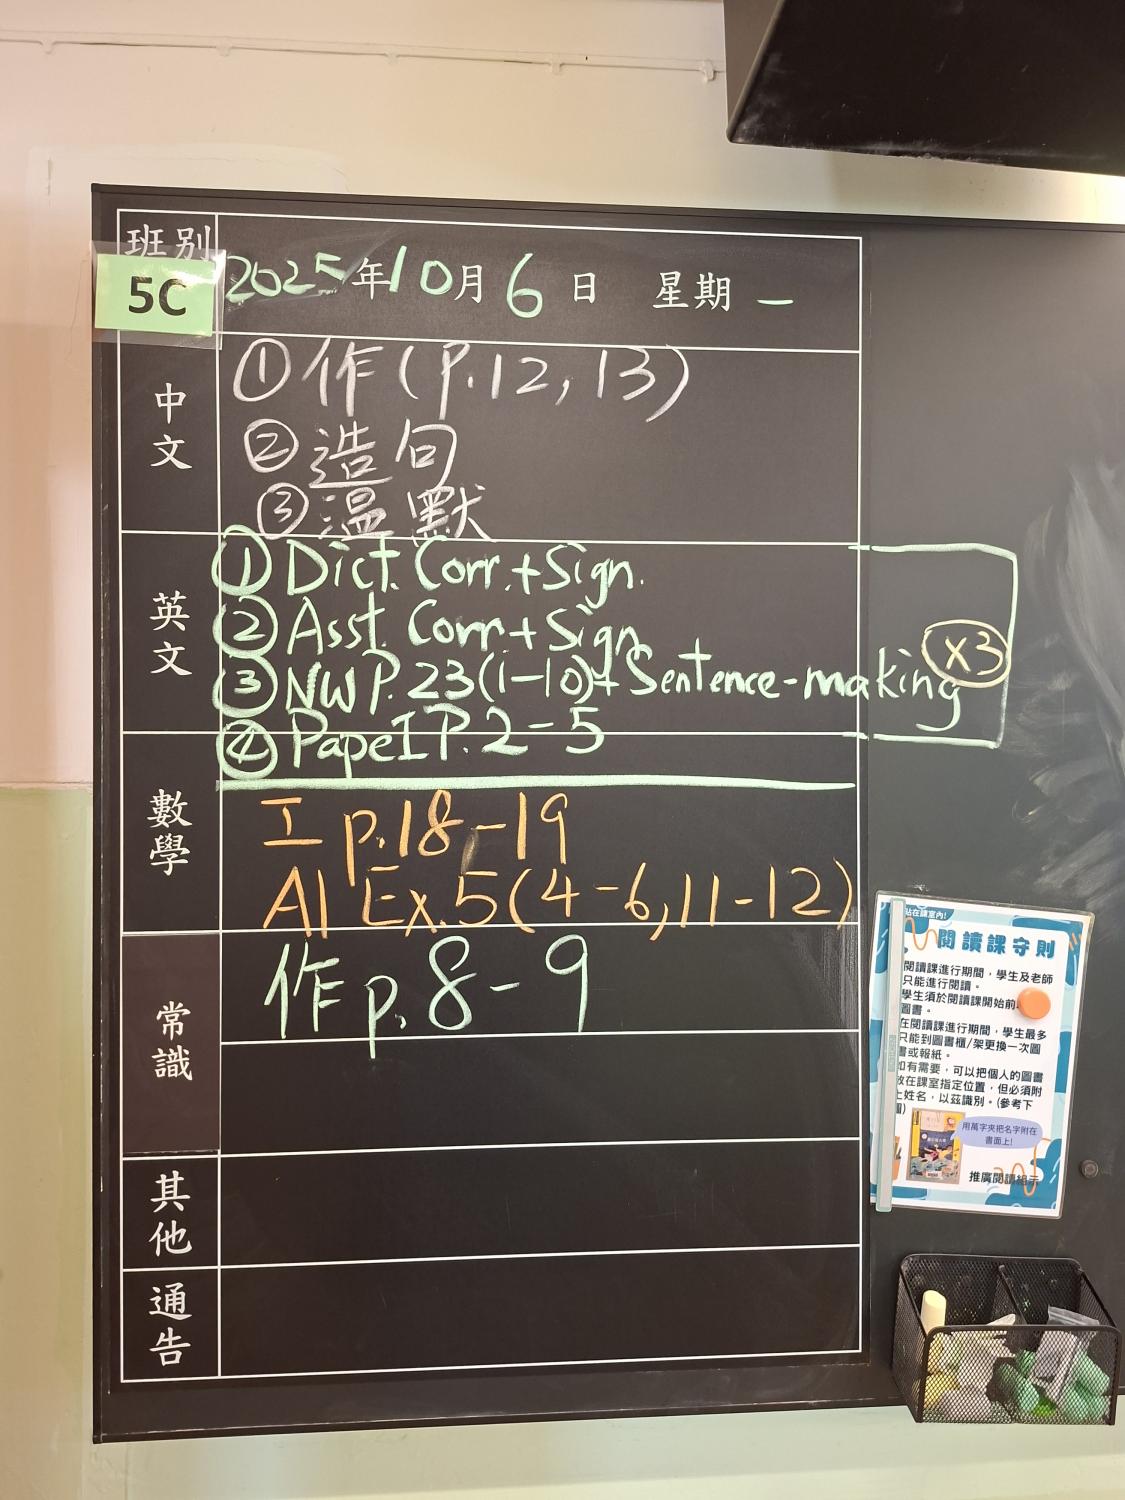 班別
5C
2025年10月6日 星期一
中文
①作(P.12,13)
②造句
③溫默
英文
①Dict. Corr.+Sign.
②Asst. Corr.+Sign
③NW P.23(1-10)+Sentence-making ×3
④PapeI P.2-5
數學
工 p.18-19
A1 Ex.5(4-6,11-12)
常識
作 p.8-9
其他
通告
貼在課室內!
閱讀課守則
閱讀課進行期間，學生及老師
只能進行閱讀。
學生須於閱讀課開始前
圖書。
在閱讀課進行期間，學生最多
只能到圖書櫃/架更換一次圖
書或報紙。
如有需要，可以把個人的圖書
放在課室指定位置，但必須附
上姓名，以茲識別。(參考下
圖)
用萬字夾把名字附在
書面上!
推廣閱讀組示